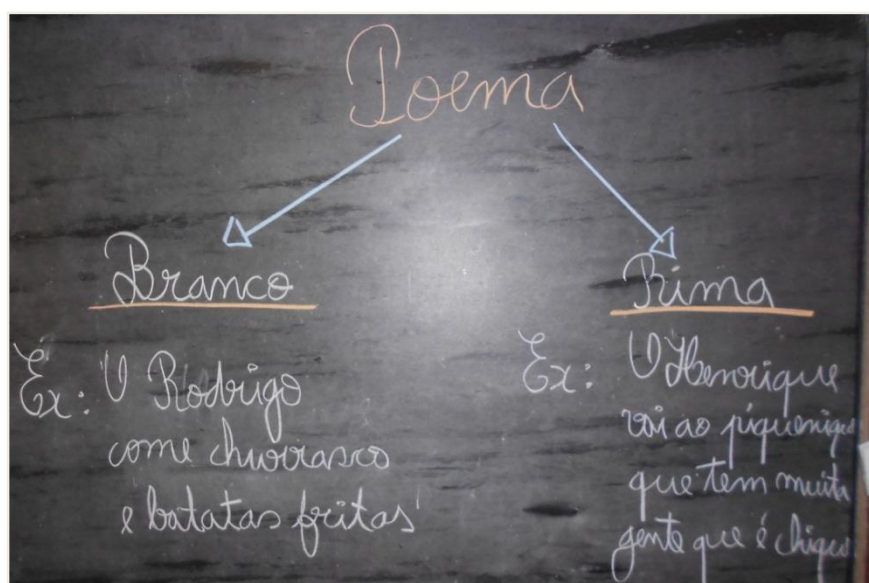 Poema
Branco
Ex: O Rodrigo
come churrasco
e batatas fritas
Rima
Ex: O Henrique
vai ao piquenique
que tem muita
gente que é chique